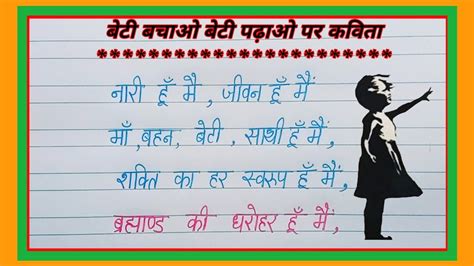 बेटी बचाओ बेटी पढ़ाओ पर कविता
********************
नारी हूँ मै , जीवन हूँ मैं
माँ ,बहन, बेटी , साथी हूँ मैं ,
शक्ति का हर स्वरुप हूँ मैं ,
ब्रह्माण्ड की धरोहर हूँ मैं ,